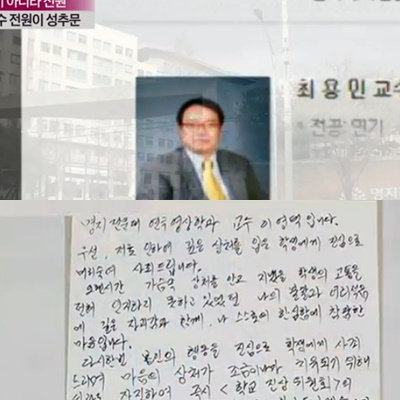 아니라 전원
수 전원이 성추문
최용민 교수
전공: 연기
명지
명지 전문대 연극영상학과 교수 이영택 입니다.
우선, 저로 인하여 깊은 상처를 입은 학생에게 진심으로
머리숙여 사죄드립니다.
오랜시간 가슴속 상처를 안고 지냈을 학생의 고통을
전혀 인지하지 못하고 있었던 나의 불찰과 어리석음
에 깊은 자괴감과 함께, 나 스스로의 한심함에 참담한
마음입니다.
다시한번 본인의 행동을 진심으로 학생에게 사죄
드리며 마음의 상처가 조금이나마 치유되기 위해
자리하여 즉시 <학교 진상 위원회>에